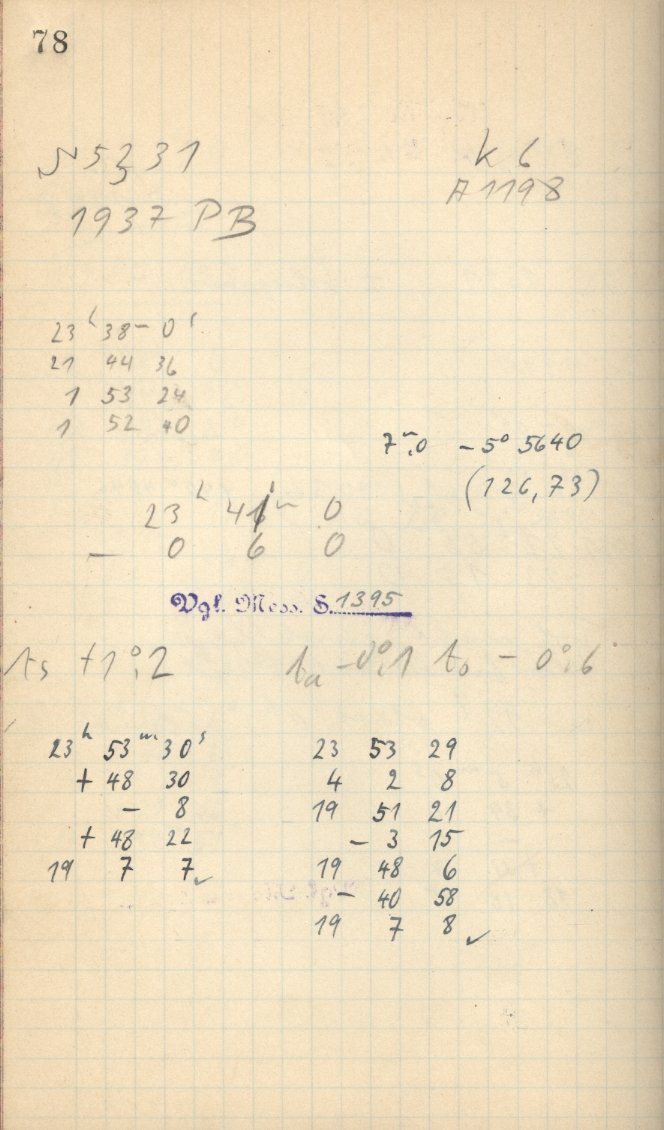 78
S 5231
3
1937 PB
K 6
A 1198
23ʰ 38ᵐ 0ˢ
21 44 36
1 53 24
1 52 40
7ᵐ,0 -5° 5640
(126,73)
23ʰ 41ᵐ 0
- 0 6 0
Vgl. Mess. S. 1395
ts +1°,2
ta -0°,1 to -0°,6
23ʰ 53ᵐ 30ˢ
+ 48 30
- 8
+ 48 22
19 7 7 ✓
23 53 29
4 2 8
19 51 21
- 3 15
19 48 6
- 40 58
19 7 8 ✓